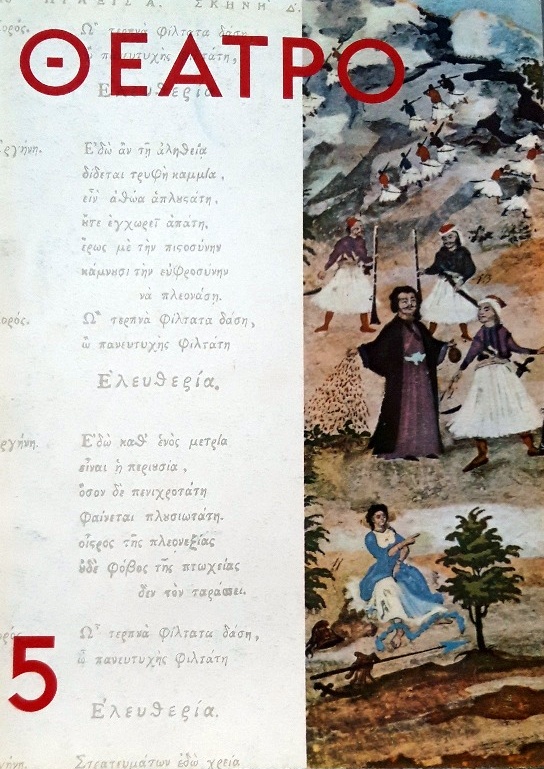 ΠΡΑΞΙΣ Α. ΣΚΗΝΗ Δ.
ορός. Ὦ τερπνὰ φίλτατα δάση,
ὦ πανευτυχὴς φιλτάτη,
ΘΕΑΤΡΟ
Ἐλευθερία
ργήνη. Ἐδὼ ἂν τῇ ἀληθείᾳ
δίδεται τρυφὴ καμμία,
εἶν ἀθώα ἁπλυςάτη,
ὔτε ἐγχωρεῖ ἀπάτη.
ἔρως μὲ τὴν πιςοσύνην
κάμνυσι τὴν εὐφροσυνην
νὰ πλεονάσῃ.
ορός. Ὦ τερπνὰ φίλτατα δάση,
ὦ πανευτυχὴς φιλτάτη
Ἐλευθερία.
ργήνη. Ἐδὼ καθ' ἑνὸς μετρία
εἶναι ἡ περιυσία,
ὅσον δὲ πενιχροτάτη
φαίνεται πλυσιωτάτη.
οἶςρος τῆς πλεονεξίας
ὐδὲ φόβος τῆς πτωχείας
δεν τὸν ταράσσει.
ορός. Ὦ τερπνὰ φίλτατα δάση,
ὦ πανευτυχὴς φιλτάτη
5
Ἐλευθερία.
γήνη. Στρατευμάτων ἐδὼ χρεία